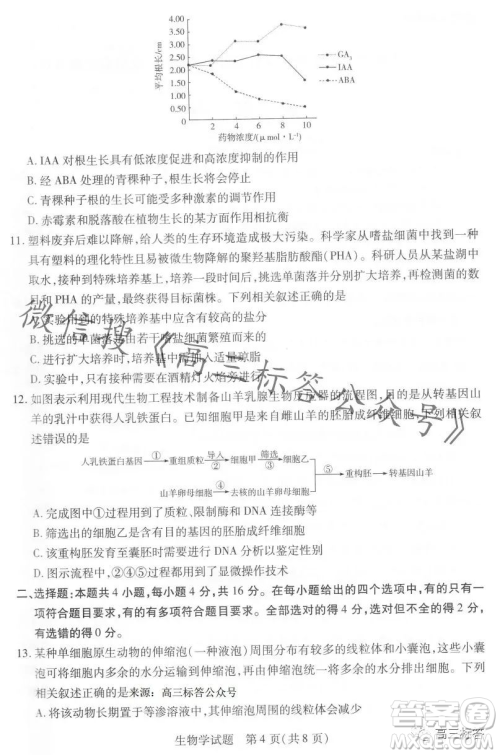 平均根长/cm
4.00
3.50
3.00
2.50
2.00
1.50
1.00
0.50
0.00
2 4 6 8 10
药物浓度/(μmol·L⁻¹)
GA₃
IAA
ABA
A. IAA 对根生长具有低浓度促进和高浓度抑制的作用
B. 经 ABA 处理的青稞种子,根生长可能受到抑制
C. 青稞种子根的生长可能受多种激素的影响
D. 赤霉素和脱落酸在植物生长的某方面作用相反
11. 塑料废弃后难以降解,给人类的生存环境造成极大污染。科学家从嗜盐细菌中找到
具有塑料的理化特性且容易被微生物降解的聚羟基脂肪酸酯(PHA)。科研人员从某盐湖中
取水,接种到特殊培养基上,挑选单菌落并分别扩大培养,再进行
和产量等
的检测,从而获得目标菌株。下列相关叙述错误的是
A.
的特殊培养基中应富含盐分
B. 挑选的单菌落
细菌繁殖而来的
C. 在进行扩大培养时,
适量琼脂
D. 实验中,只需要在酒精灯火焰旁进行
12. 如图表示利用现代生物工程技术制备山羊乳腺生物反应器的流程图,目的是从转基因山
羊的乳汁中获得人乳铁蛋白。已知细胞甲是来自雌山羊的
。下列相关叙
述错误的是
人乳铁蛋白基因 ① 重组质粒 导入 ② 细胞甲 筛选 ③ 细胞乙
山羊卵母细胞 ④ 去核的山羊卵母细胞
⑤ 重构胚 ⑥ 转基因山羊
A. 完成图中①过程可能需要用到 PCR 技术、限制酶和 DNA 连接酶等
B. 筛选出的细胞乙是含有目的基因的胚胎成纤维细胞
C. 该重构胚可发育为转基因的雌性或雄性山羊
D. 图示流程中,②④⑤均用到了显微操作技术
二、选择题:本题共 4 小题,每小题 4 分,共 16 分。在每小题给出的四个选项中,有的只有一
项符合题目要求,有的有多项符合题目要求。全部选对的得 4 分,选对但不全的得 2 分,
有选错的得 0 分。
13. 某种单细胞原生动物的伸缩泡(一种液泡)周围分布有众多的线粒体和小囊泡,这些小囊
泡可以将细胞内多余的水分运输到伸缩泡内,再经伸缩泡将多余的水分运出细胞。下列
相关叙述正确的是来源:高三标答公众号
A. 若将该原生动物置于等渗溶液中,其小囊泡周围的线粒体数量可能会减少
生物学试题 第 4 页(共 8 页)
微信搜《高三标答公众号》
高三标答